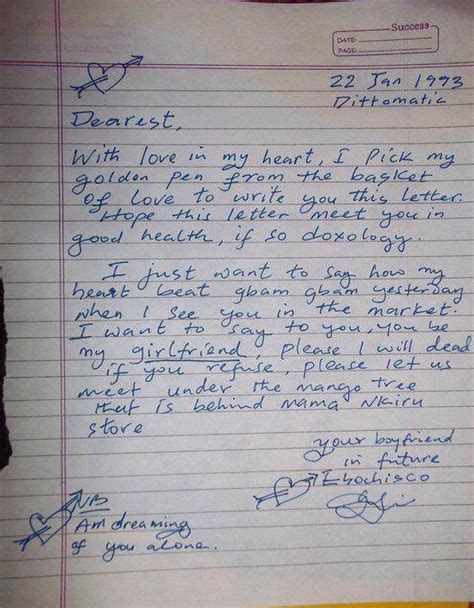 Success
DATE
PAGE
22 Jan 1993
Dittomatic
Dearest,
With love in my heart, I Pick my
golden pen from the basket
of love to write you this letter.
Hope this letter meet you in
good health, if so doxology.
I just want to say how my
heart beat gbam gbam yesterday
when I see you in the market.
I want to say to you, you be
my girlfriend, please I will dead
if you refuse, please let us
meet under the mango tree
that is behind mama Nkiru
store
your boyfriend
in future
Ebochisco
NB
Am dreaming
of you alone.